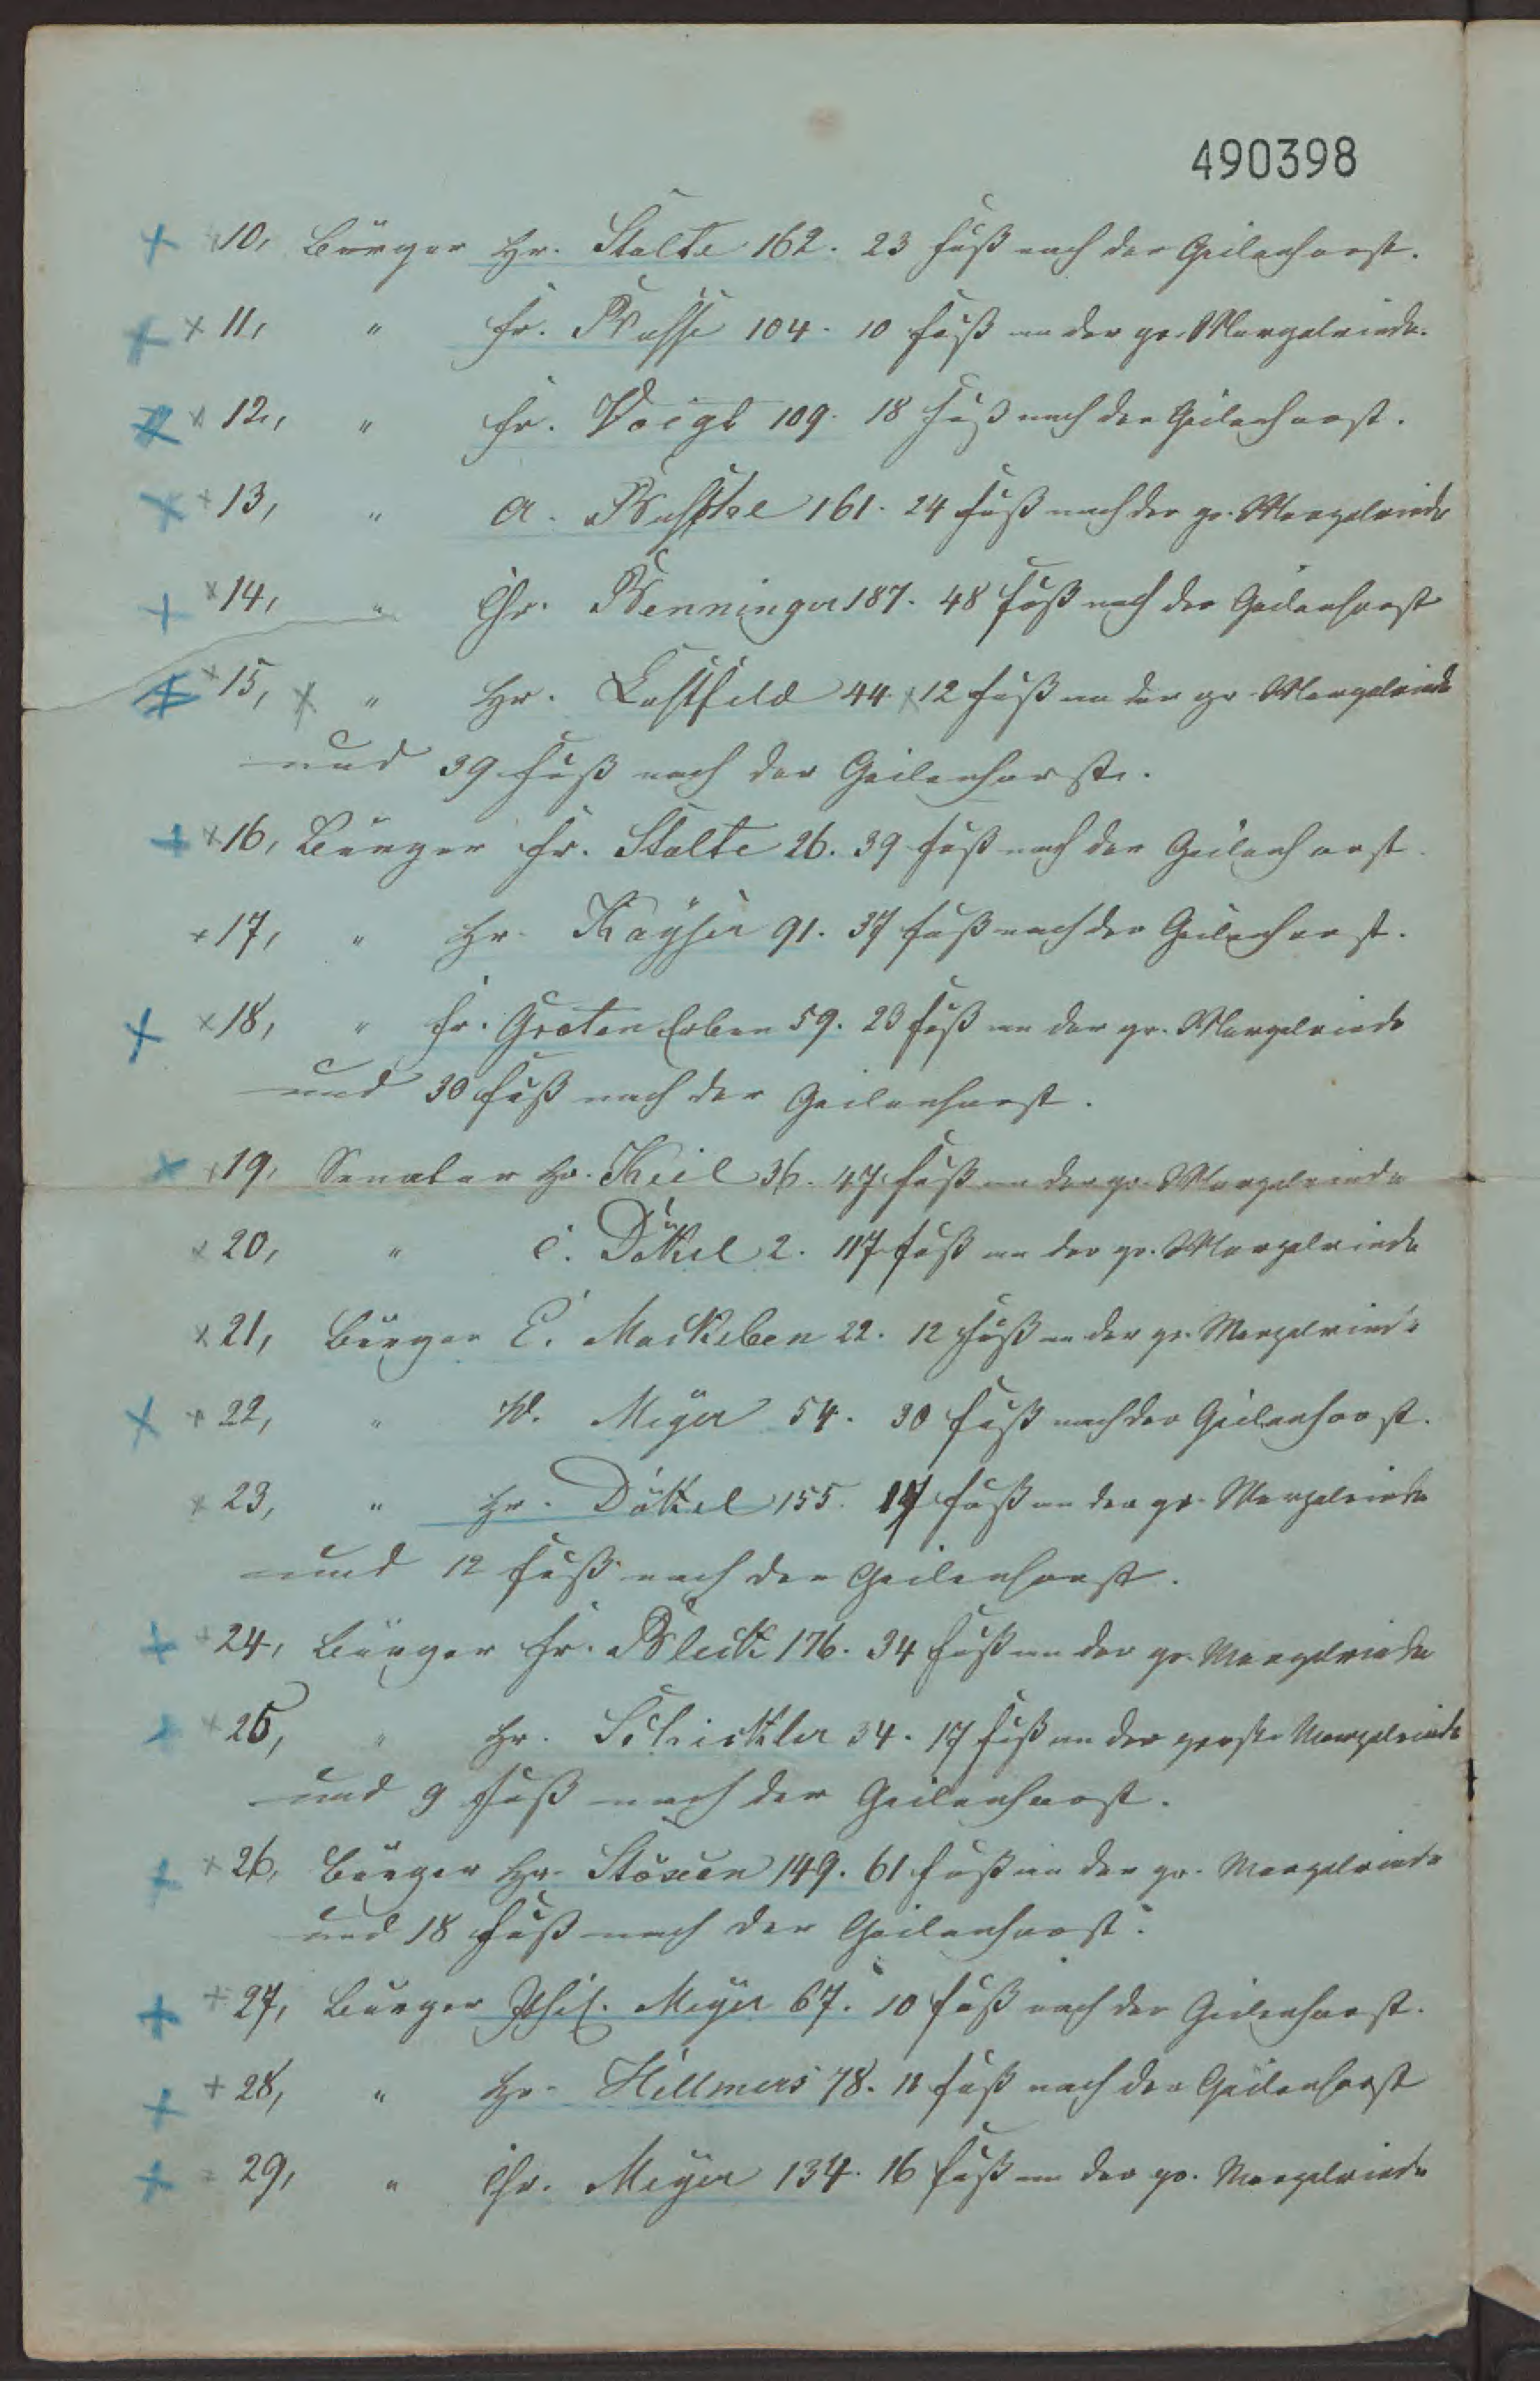 490398
10, Bürger Hr. Stolte 162. 23 Fuß nach der Geilenhorst.
11, " Fr. Busse 104. 10 Fuß an der gr. Mergelriede.
12, " Fr. Voigt 109. 18 Fuß nach der Geilenhorst.
13, " A. 161. 24 Fuß nach der gr. Mergelriede
14, " Chr. Benninger 187. 48 Fuß nach der Geilenhorst
15, " Hr. Lustfeld 44. 12 Fuß an der gr. Mergelriede
und 39 Fuß nach der Geilenhorst.
16, Bürger Fr. Stolte 26. 39 Fuß nach der Geilenhorst.
17, " Hr. Kayser 91. 37 Fuß nach der Geilenhorst.
18, " Fr. Groten Erben 59. 23 Fuß an der gr. Mergelriede
und 30 Fuß nach der Geilenhorst.
19, Senator Hr. Keil 36. 47 Fuß an der gr. Mergelriede
20, " C. Dökel 2. 117 Fuß an der gr. Mergelriede
21, Bürger E. Mackeben 22. 12 Fuß an der gr. Mergelriede
22, " W. Meyer 54. 30 Fuß nach der Geilenhorst.
23, " Hr. Dökel 155. 17 Fuß an der gr. Mergelriede
und 12 Fuß nach der Geilenhorst.
24, Bürger Fr. Bleck 176. 34 Fuß an der gr. Mergelriede
25, " Hr. Schickler 34. 17 Fuß an der große Mergelriede
und 9 Fuß nach der Geilenhorst.
26, Bürger Hr. 149. 61 Fuß an der gr. Mergelriede
und 18 Fuß nach der Geilenhorst.
27, Bürger Phil. Meyer 67. 10 Fuß nach der Geilenhorst.
28, " Hr. Hillmers 78. 11 Fuß nach der Geilenhorst
29, " Chr. Meyer 134. 16 Fuß an der gr. Mergelriede